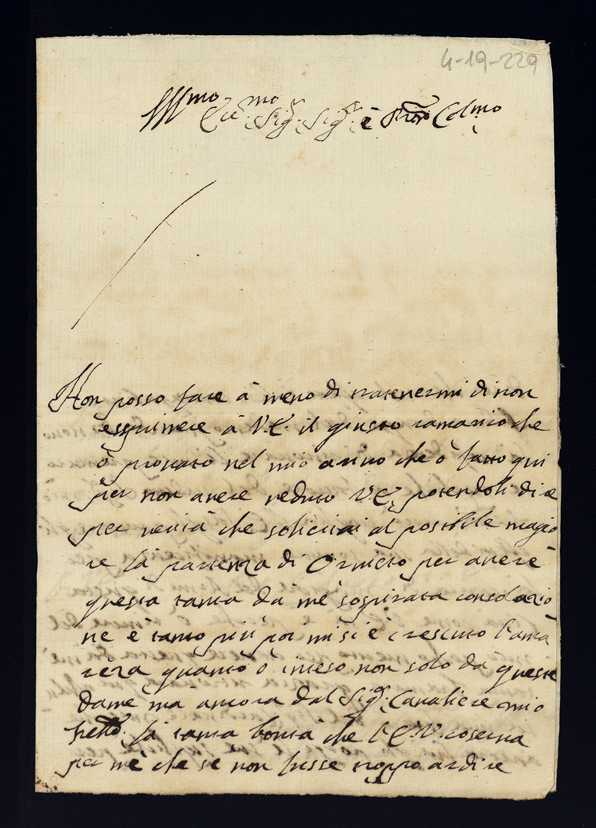 4-19-229
Illmo Ecc.mo Sig.r Sig.r è Pron Colmo
Non posso fare à meno di tratenermi di non
esprimere à V.E. il giusto ramarico che
ò provato nel mio arivo che ò fatto qui
per non avere veduto V.E. potendoli dire
per verità che solicitai al posibile magio
re la partenza di Orvieto per avere
questa tanta da mé sospirata consolazio
ne è tanto più poi mi si é cresciuto l'ama
reza quanto ò inteso non solo da queste
dame ma ancora dal Sig.r Cavaliere mio
la tanta bontà che l'E.V. conserva
per mé che se non fusse troppo ardire